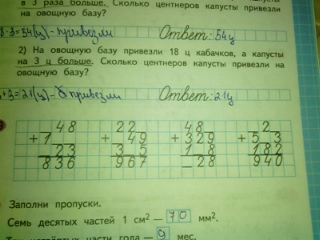 в 3 раза больше. Сколько центнеров капусты привезли
на овощную базу?
3=54(ц)-привезли Ответ: 54ц
2) На овощную базу привезли 18 ц кабачков, а капусты
на 3 ц больше. Сколько центнеров капусты привезли на
овощную базу?
+3=21(ц)- привезли Ответ: 21ц
148 22 48 2
+1 + 49 +329 +5 3
23 3 5 1 8 182
836 967 28 940
Заполни пропуски.
Семь десятых частей 1 см² — 70 мм².
части года — 9 мес.